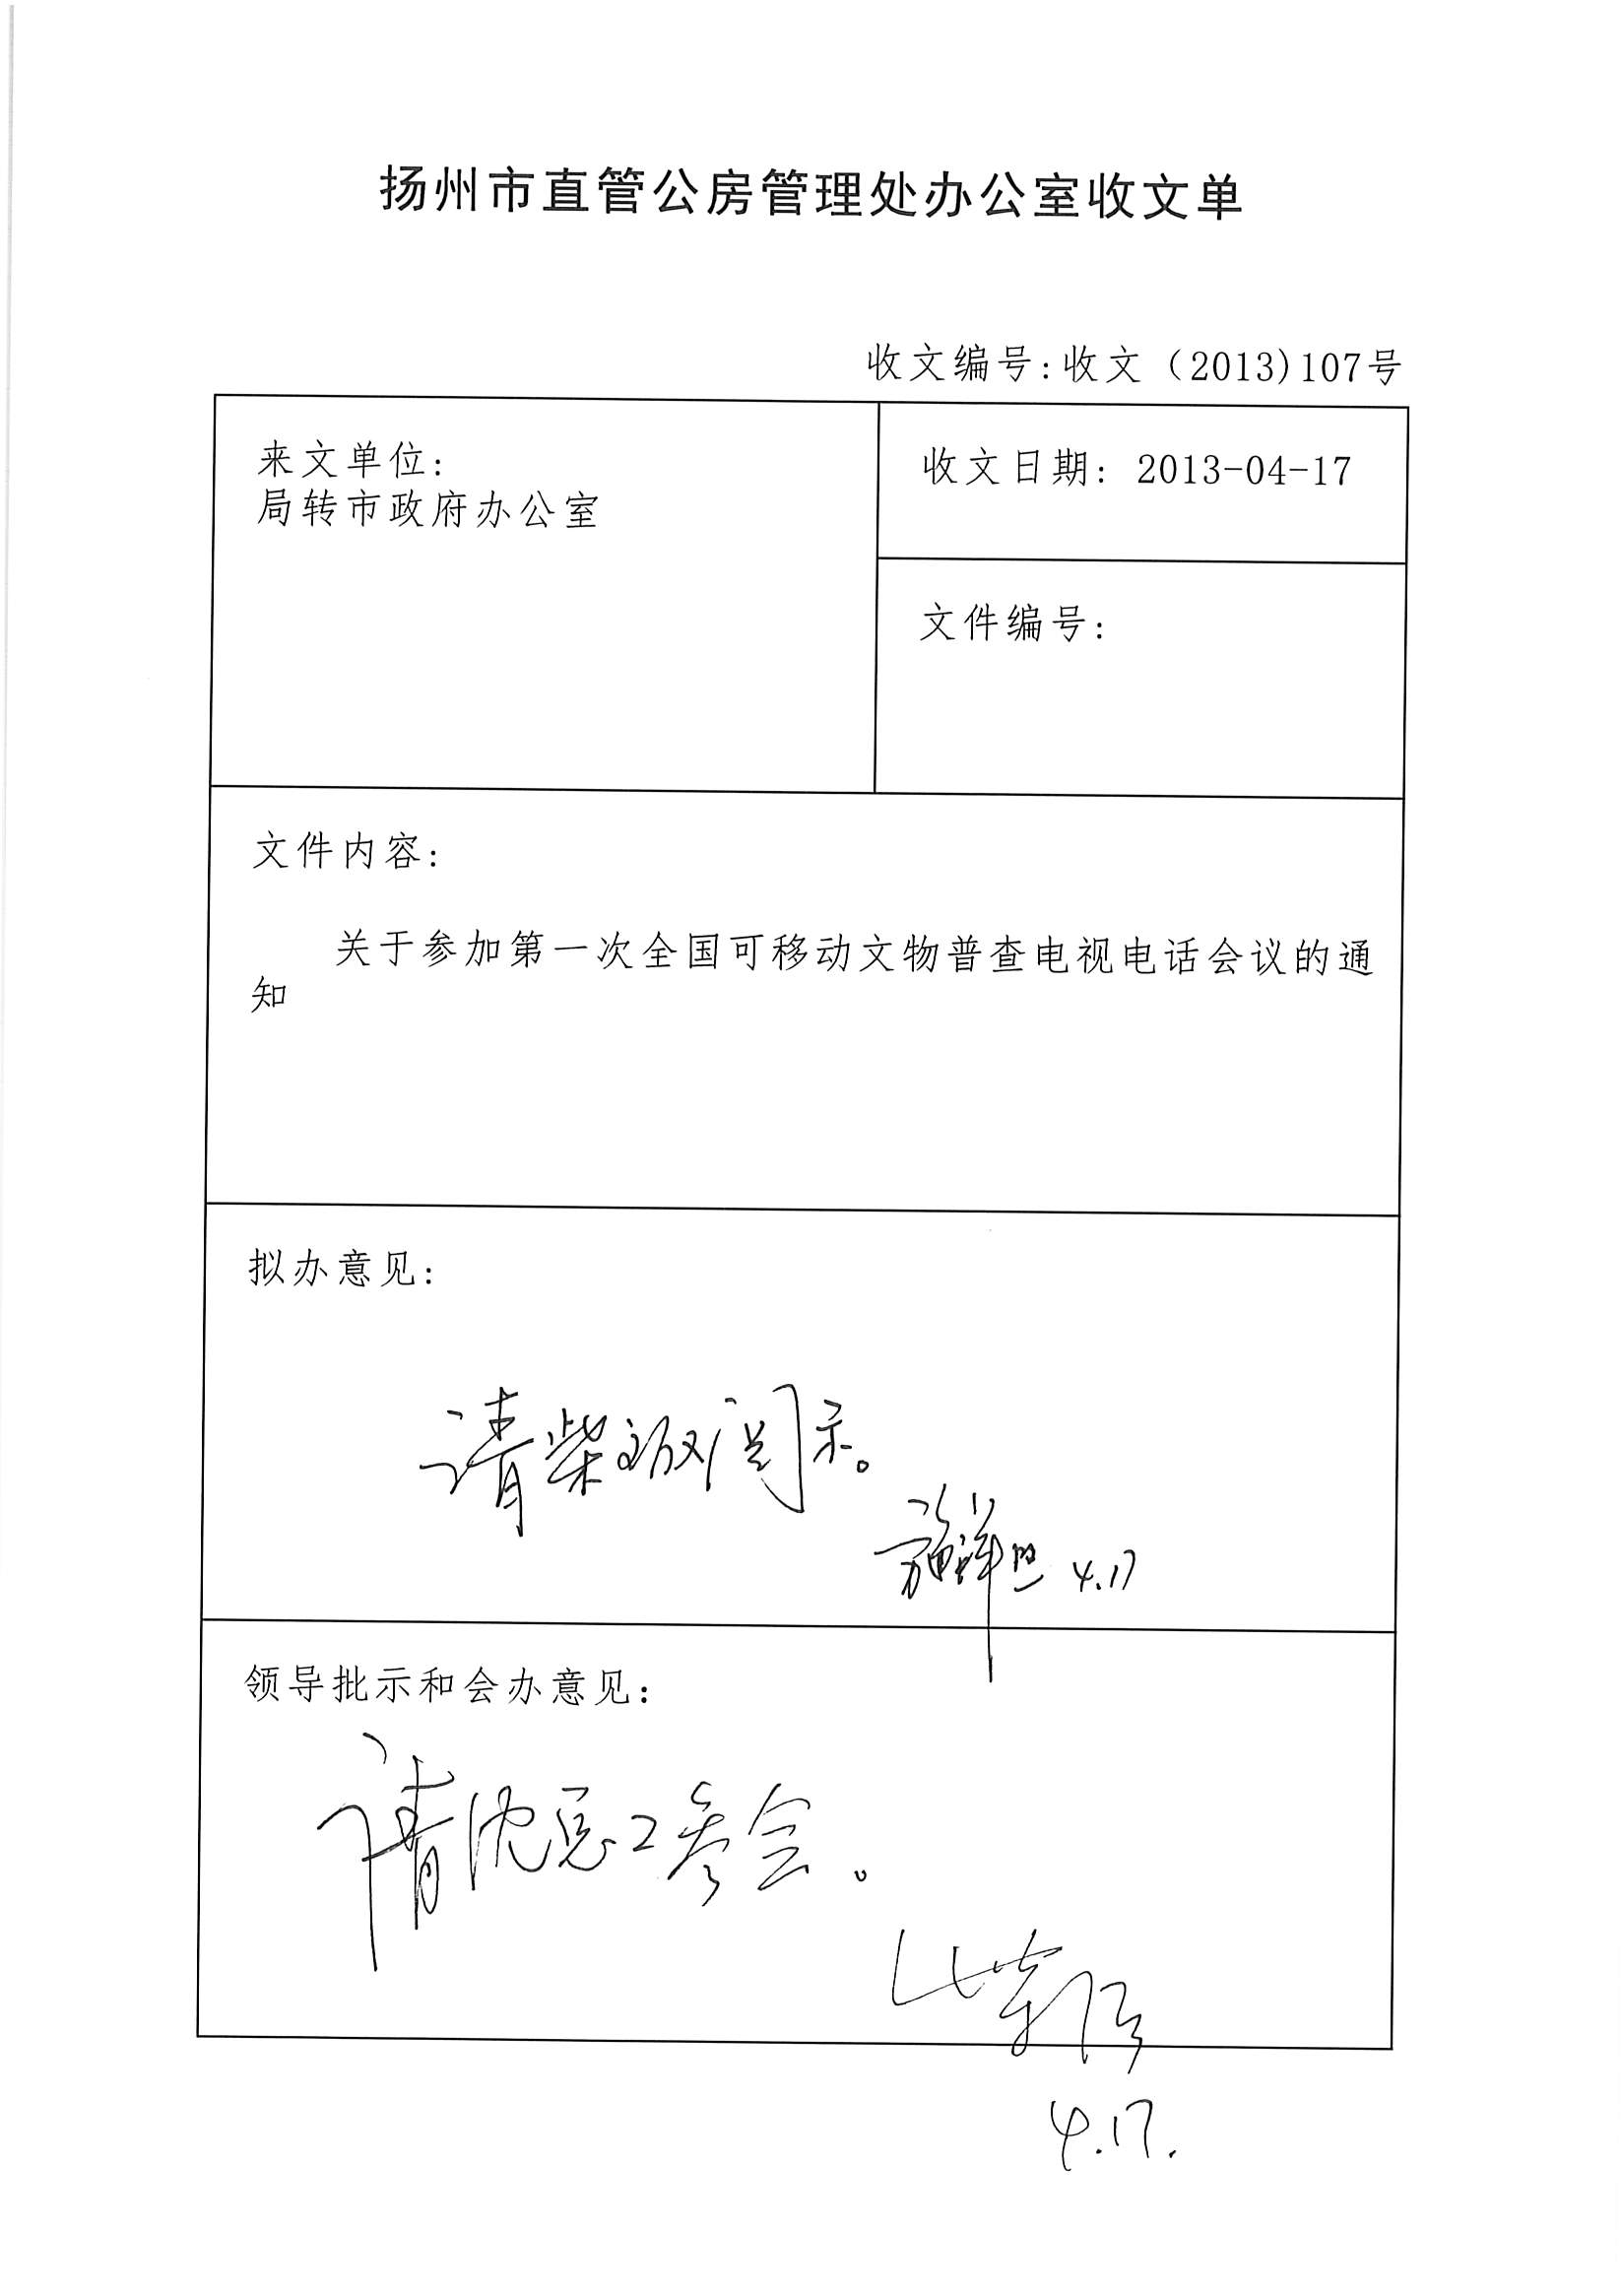 扬州市直管公房管理处办公室收文单
收文编号:收文（2013)107号
来文单位:
局转市政府办公室
收文日期: 2013-04-17
文件编号:
文件内容:
关于参加第一次全国可移动文物普查电视电话会议的通
知
拟办意见:
请柴 阅示。
4.17
领导批示和会办意见:
请沈总工参会。
4.17.